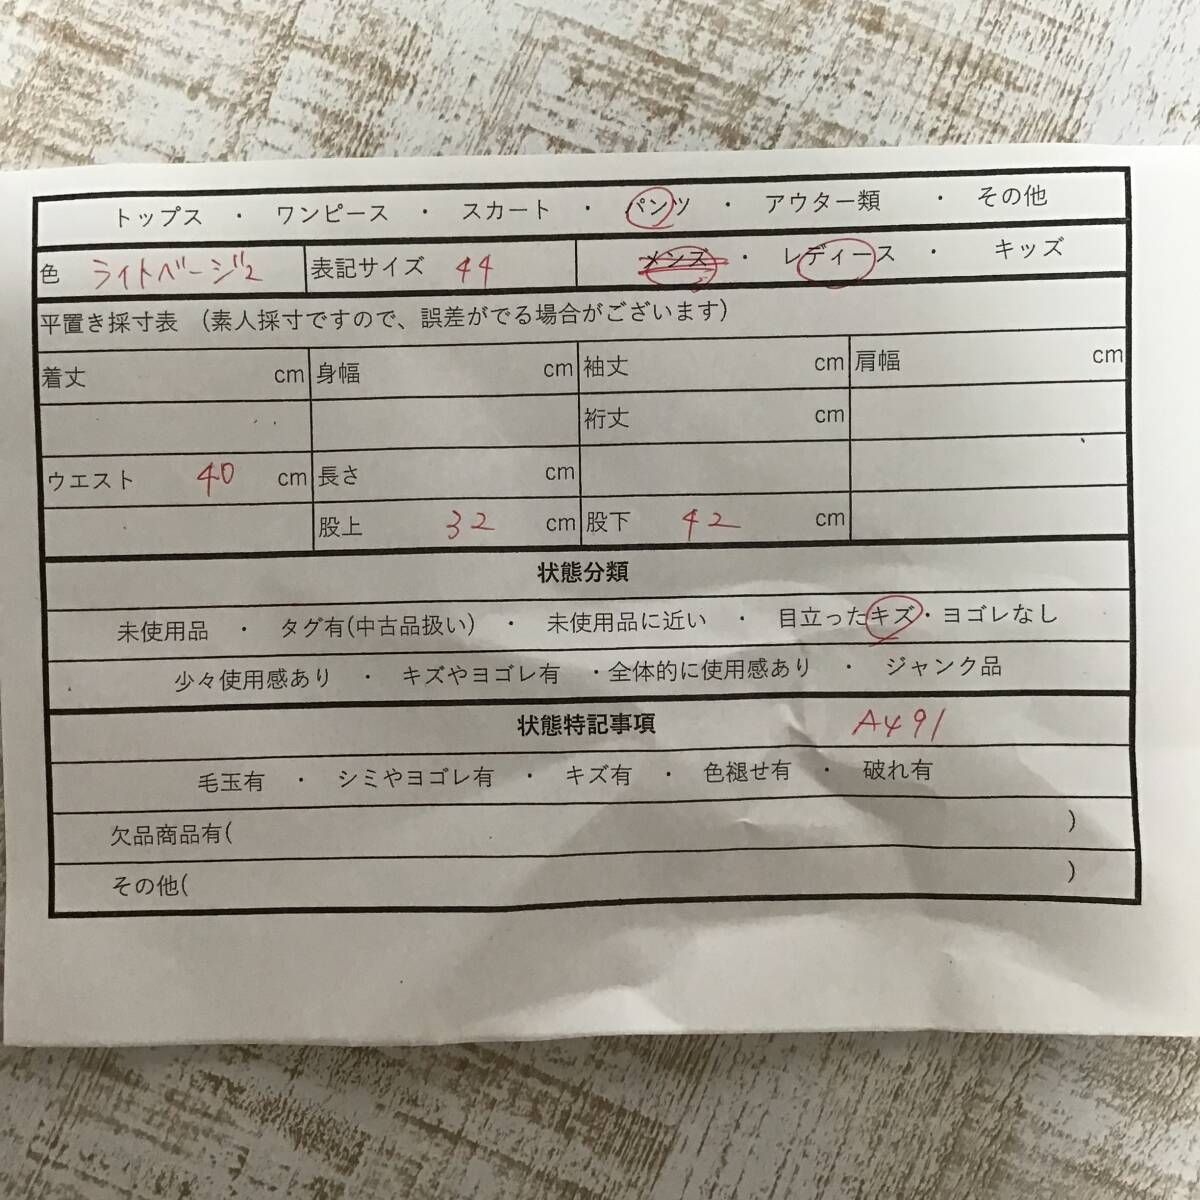 トップス ・ ワンピース ・ スカート ・ パンツ ・ アウター類 ・ その他
色 ライトベージュ 表記サイズ 44 メンズ ・ レディース ・ キッズ
平置き採寸表 （素人採寸ですので、誤差がでる場合がございます）
着丈 cm 身幅 cm 袖丈 cm 肩幅 cm
裄丈 cm
ウエスト 40 cm 長さ cm
股上 32 cm 股下 42 cm
状態分類
未使用品 ・ タグ有(中古品扱い) ・ 未使用品に近い ・ 目立ったキズ・ヨゴレなし
少々使用感あり ・ キズやヨゴレ有 ・全体的に使用感あり ・ ジャンク品
状態特記事項 A491
毛玉有 ・ シミやヨゴレ有 ・ キズ有 ・ 色褪せ有 ・ 破れ有
欠品商品有( )
その他( )